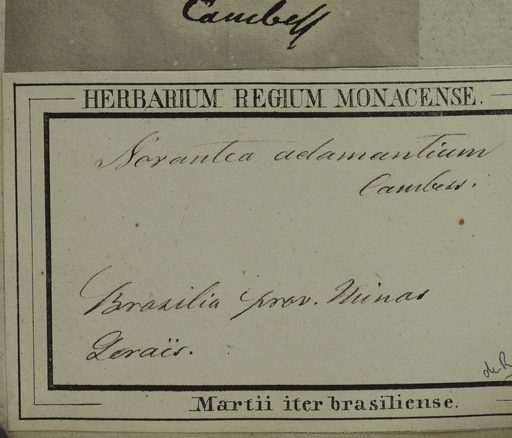 Cambess
HERBARIUM REGIUM MONACENSE.
Norantea adamantium
Cambess.
Brasilia prov. Minas
Geraïs.
Martii iter brasiliense.